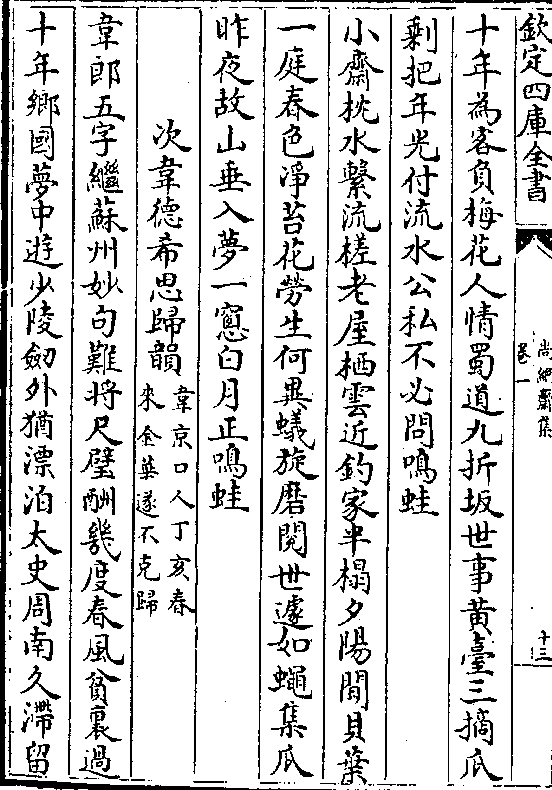 欽定四庫全書
尚絅齋集
卷一
十三
十年為客負梅花人情蜀道九折坂世事黄臺三摘瓜
剩把年光付流水公私不必問鳴蛙
小齋枕水繫流槎老屋栖雲近釣家半榻夕陽間貝葉
一庭春色凈苔花勞生何異蟻旋磨閱世遽如蠅集瓜
昨夜故山垂入夢一窻白月正鳴蛙
次韋德希思歸韻
韋京口人丁亥春
來金華遂不克歸
韋郎五字繼蘇州妙句難將尺璧酬幾度春風貧裏過
十年鄉國夢中遊少陵劒外猶漂泊太史周南久滯留